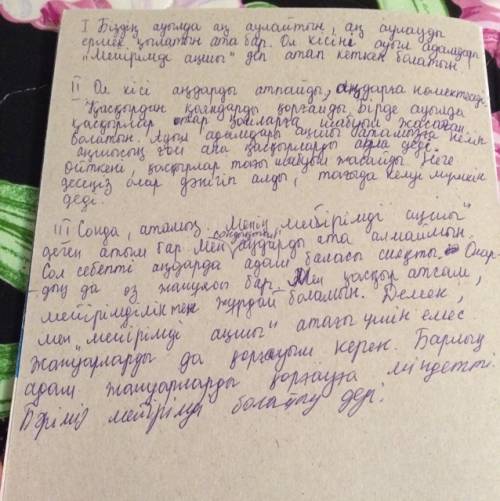 I Біздің ауылда аң аулайтын, аң аулауды
ермек қылатын ата бар. Ол кісіні ауыл адамдары
"Мейірімді аңшы" деп атап кеткен болатын
II Ол кісі аңдарды атпайды, аңдарға көмектеседі
Қасқырдан қояндарды қорғайды. Бірде ауылда
қасқырлар қойларға шабуыл жасаған
болатын. Ауыл адамдары аңшы атамызға келіп
аңшысың ғой ана қасқырларды атла деді.
Өйткені, қасқырлар тағы шабуыл жасайды. Неге
десеңіз олар дәнігіп алды, тағыда келуі мүмкін
деді.
III Сонда, атамыз Менің "мейірімді аңшы"
деген атым бар Мен сондықтан аңдарды ата алмаймын.
Сол себепті аңдарда адам баласы сияқты. Олар-
дың да өз жанұясы бар. Мен қасқыр атсам,
мейірімділіктен жұрдай боламын. Демек,
мен "мейірімді аңшы" атағы үшін емес
жануарларды да қорғауым керек. Барлық
адам жануарларды қорғауға міндетті.
Бәріміз мейірімді болайық деді.